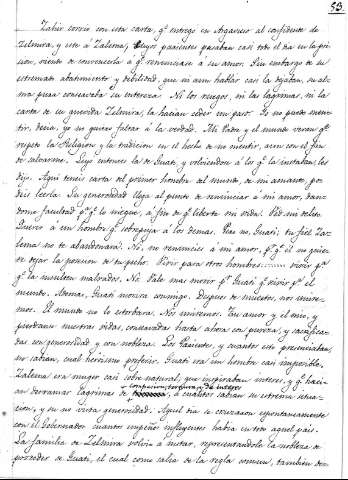 53.
Zahir corrió con esta carta, q.e entregó en Argancis al confidente de
Zelmira, y este á Zulema, cuyos parientes pasaban casi todo el dia en la pri-
sion, viendo de convencerla á q.e renunciase á su amor. Sin embargo de su
estremado abatimiento y debilidad, que ni aun hablar casi la dejaban, su al-
ma pura conservaba su entereza. Ni los ruegos, ni las lagrimas, ni la
carta de su querida Zelmira, la hacian ceder un paso. Yo no puedo men-
tir, decia, yo no quiero faltar á la verdad. Mi Padre y el mundo veran q.e
respeto la Religion y la tradicion en el hecho de no mentir, aun con el fin
de salvarme. Luyo entonces la de Guati, y volviendose á los q.e la instaban, les
dijo. Aqui teneis carta del primer hombre del mundo, de mi amante, po-
deis leerla. Su generosidad llega al punto de renunciar á mi amor, dan-
dome facultad p.a q.e lo niegue, á fin de q.e liberte mi vida.
Quereis á un hombre q.e sobrepuja á los demas. No no, Guati: tu fiel Zu-
lema no te abandonará. No, no renuncies á mi amor, p.r q.e él no quie-
re dejar la posesion de tu pecho. Vivir para otros hombres ........ vivir p.a
q.e la insulten malvados. No. Vale mas morir p.r Guati q.e vivir p.a el
mundo. Ademas, Guati morirá conmigo. Despues de muertos, nos unire-
mos. El mundo no lo estorbará. Nos uniremos. Su amor y el mio, y
purdas nuestras vidas, conservadas hasta ahora con pureza, y sacrifica-
das con generosidad y con nobleza. Los Parientes, y cuantos esto presenciaban,
no sabian, cual heroismo preferir. Guati era un hombre casi imposible,
Zulema era muger casi sobre natural, que inspiraban interes, y q.e hacian
derramar lagrimas de á cuantos sabian su estrema situa-
cion, y su no vista generosidad. Aquel dia se cruzaron espontaneamente
con el Gobernador cuantos empeños influyentes habia en todo aquel pais.
La familia de Zelmira volvió á instar, representandole la nobleza de
proceder de Guati, el cual como salia de la regla comun, tambien de-